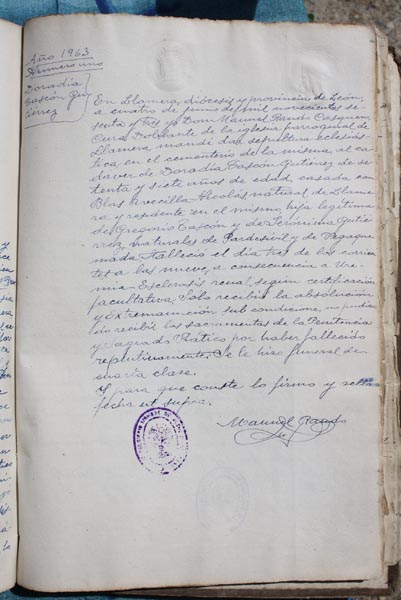 Año 1963
Número uno
Doradia
Tascón Gu-
tiérrez
En Llamera, diócesis y provincia de León,
a cuatro de de mil novecientos se-
senta y tres yo Don Manuel Pardo
Cura de la iglesia parroquial de
Llamera mandé dar sepultura eclesiás-
tica en el cementerio de la misma al ca-
dáver de Doradia Tascón Gutiérrez de se-
tenta y siete años de edad, casada con
Blas Nicolás natural de Llame-
ra y residente en el mismo, hija legítima
de Gregorio Tascón y de Jerónima Gutié-
rrez naturales de Pardesivil y de Vegaque-
mada. Falleció el día tres de los corrien-
tes a las nueve, a consecuencia de
Esclerosis renal, según certificación
facultativa. Solo recibió la absolución
y Extremaunción sub condicione, no pudien-
do recibir los sacramentos de la Penitencia
y Sagrado Viático por haber fallecido
repentinamente. Se le hizo funeral de
cuarta clase.
Y para que conste lo firmo y sello
fecha ut supra.
Manuel Pardo